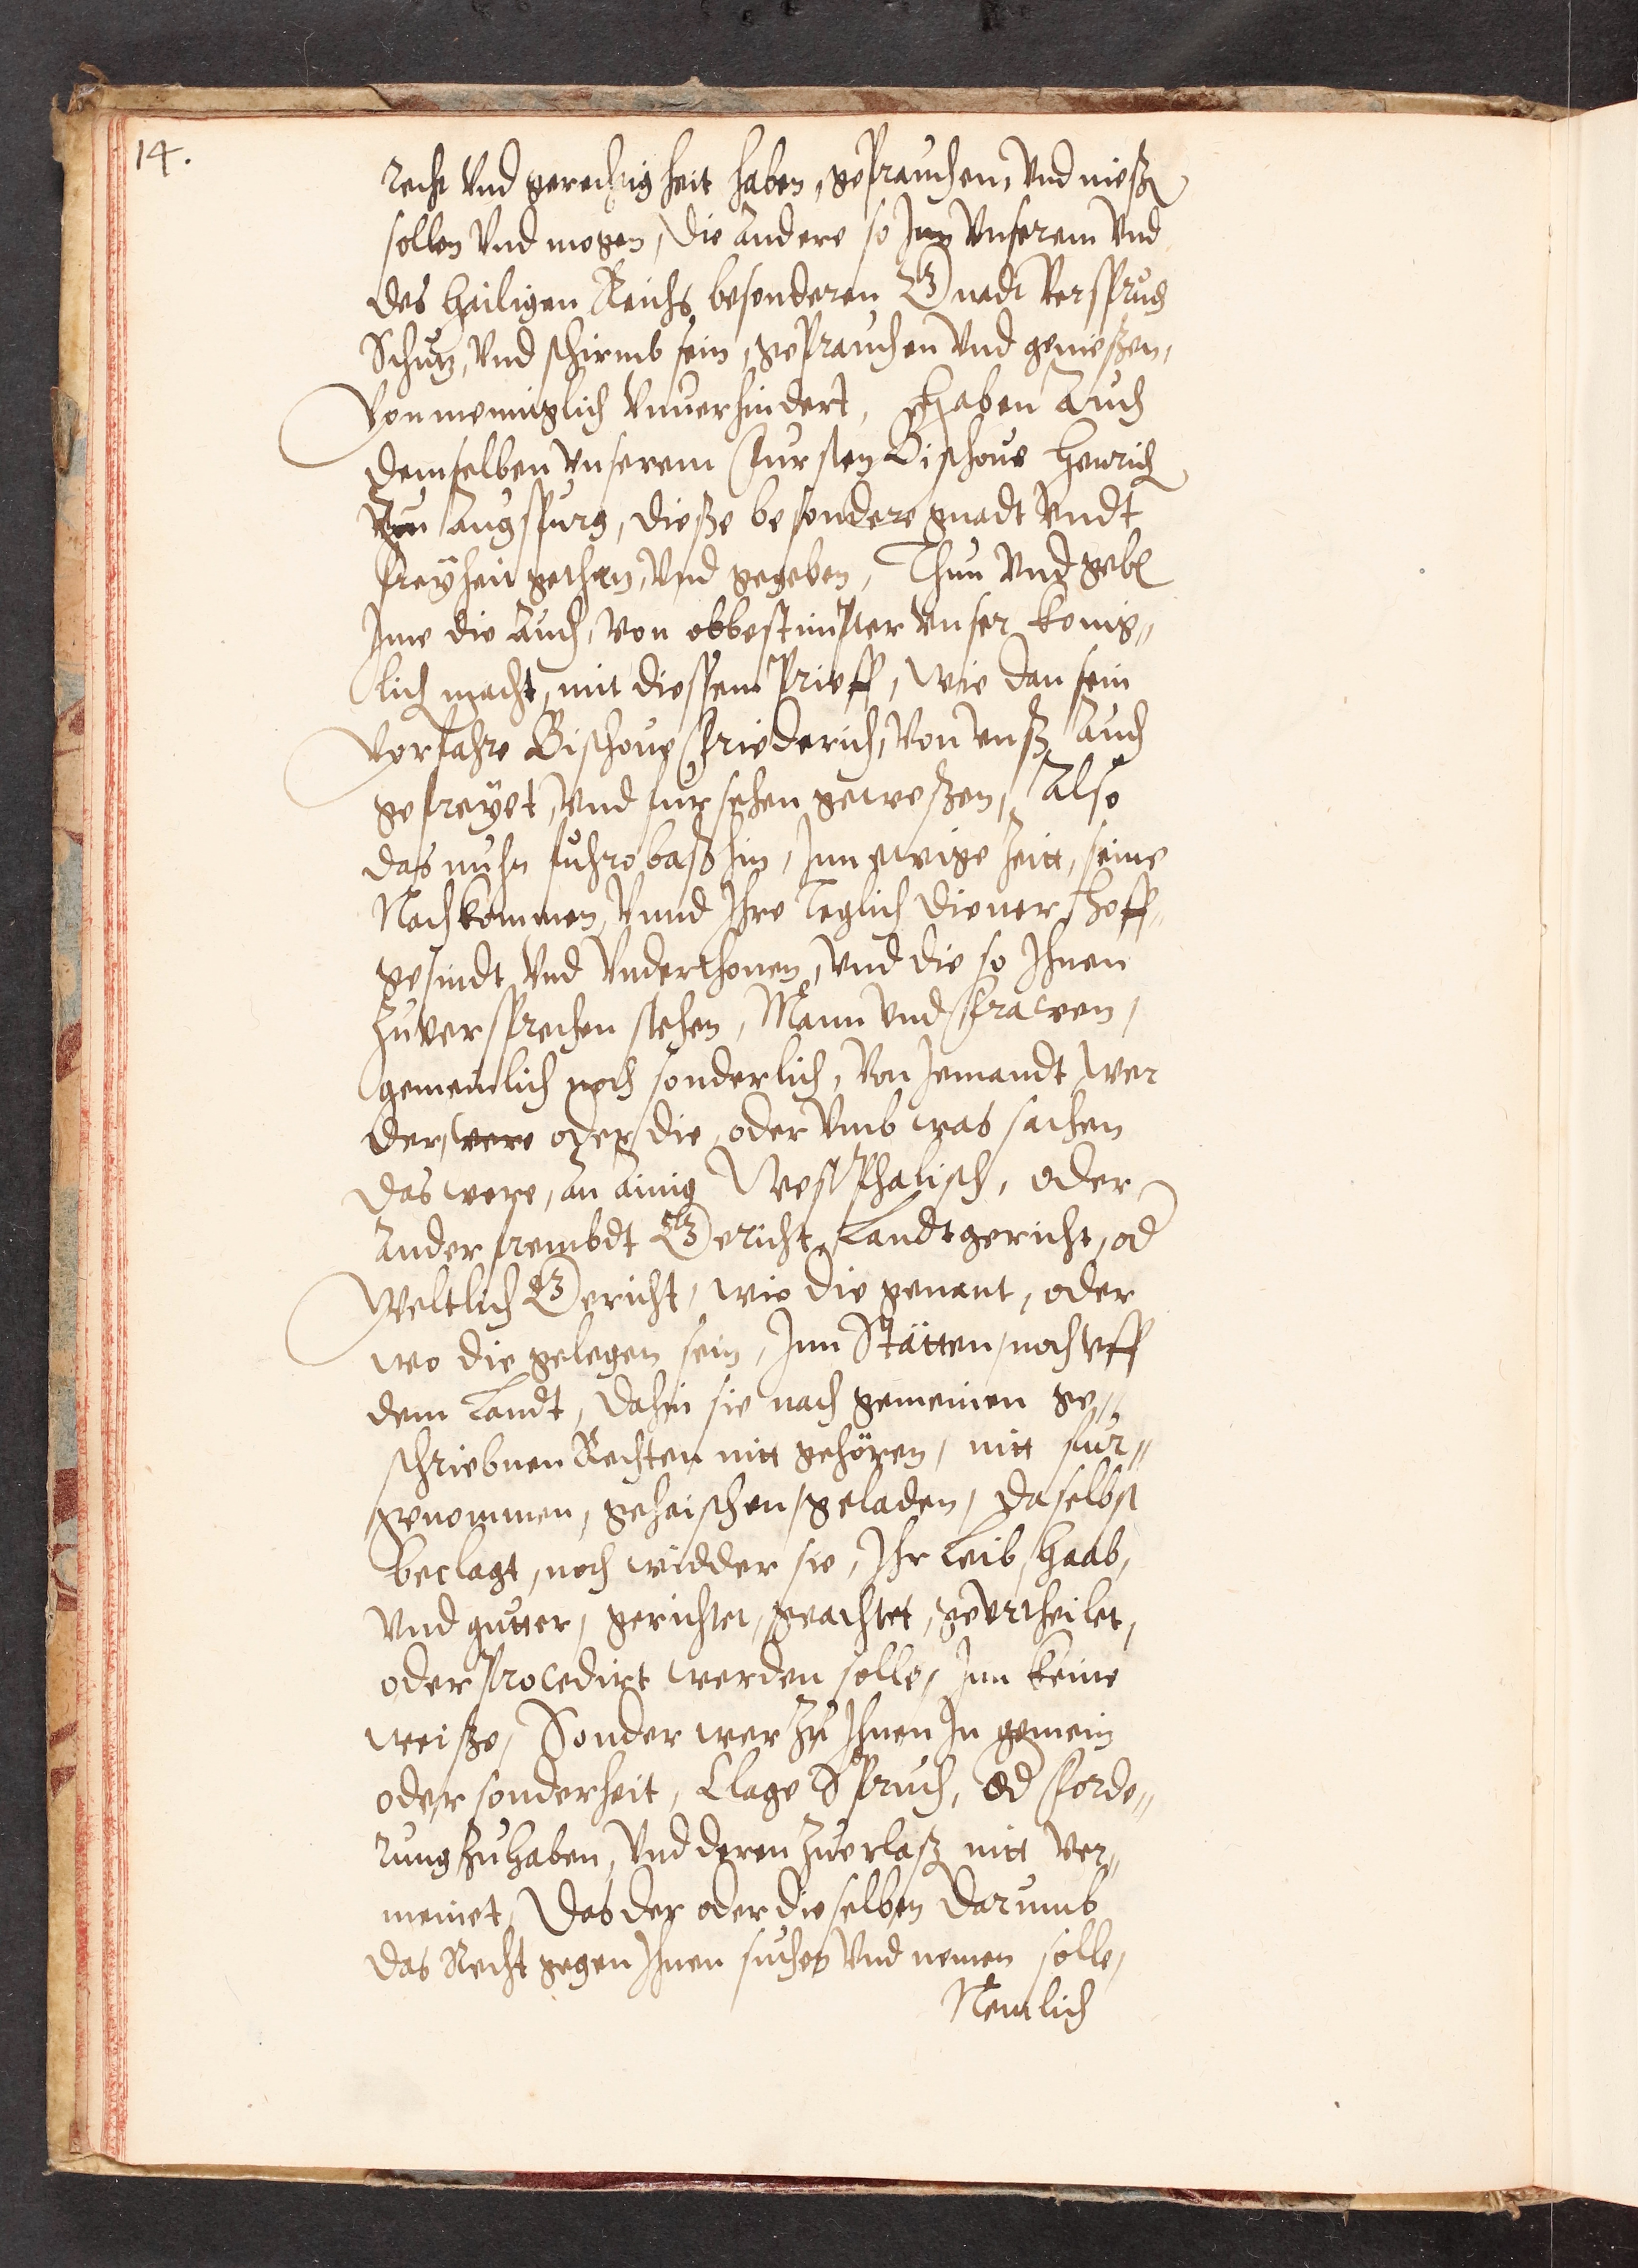 14.
recht Vnd gerechtigkeit haben, geprauchen, Vnd nießen
sollen Vnd mogen, die Andere so Inn Vnserem Vnd
des hailigen Reichs besonderen Gnadt Verspruch
Schutz, Vnd schirmb sein, geprauchen Vnd genießen,
Von meniglich Vnuerhindert, Haben Auch
demselben Vnserem Fursten Bischoue Henrich
Zu Augspurg, dieße besondere gnadt Vndt
freyheit gethan, Vnd gegeben, Thun Vnd geben
Jme die Auch, Von obbestimpter Vnser konig„
lich macht, mit diessem Prieff, wie dan sein
Vorfahre Bischoue Friederich, Von Vnß Auch
gefreyet, Vnd fursehen geweßen, Also
das nuhn fuhrobaß hin, Inn ewige Zeitt, seine
Nachkommen, Vnnd Ihre Teglich diener, Hoff„
gesindt Vnd Vnderthonen, Vnd die so Ihnen
Zuuersprechen stehen, Mann Vnd Frawen,
gemeinlich noch sonderlich, Von Jemandt wer
der, were oder die, oder Vmb was sachen
das were, An Ainig Westphalisch, oder
Ander frembdt Gericht, Landtgericht, od
Weltlich Gericht, wie die genant, oder
wo die gelegen sein, Inn Stätten, noch vff
dem Landt, dahin sie nach gemeinen ge„
schriebnen Rechten nitt gehören, nitt fur„
genommen, geheischen, geladen, daselbst
beclagt, noch widder sie, Ihr Leib, Haab,
Vnd gutter, gerichtet, geachtet, geurtheilet,
oder Procedirt werden solle, Inn keine
weiße, Sonder wer Zu Ihnen In gemein
oder sonderheit, Clage Spruch, Od Forde„
rung Zuhaben, Vnd deren Zuerlaß nitt Ver„
meinet, Das der oder dieselben darumb
das Recht gegen Ihnen suchen Vnd nemen solle,
Nemlich